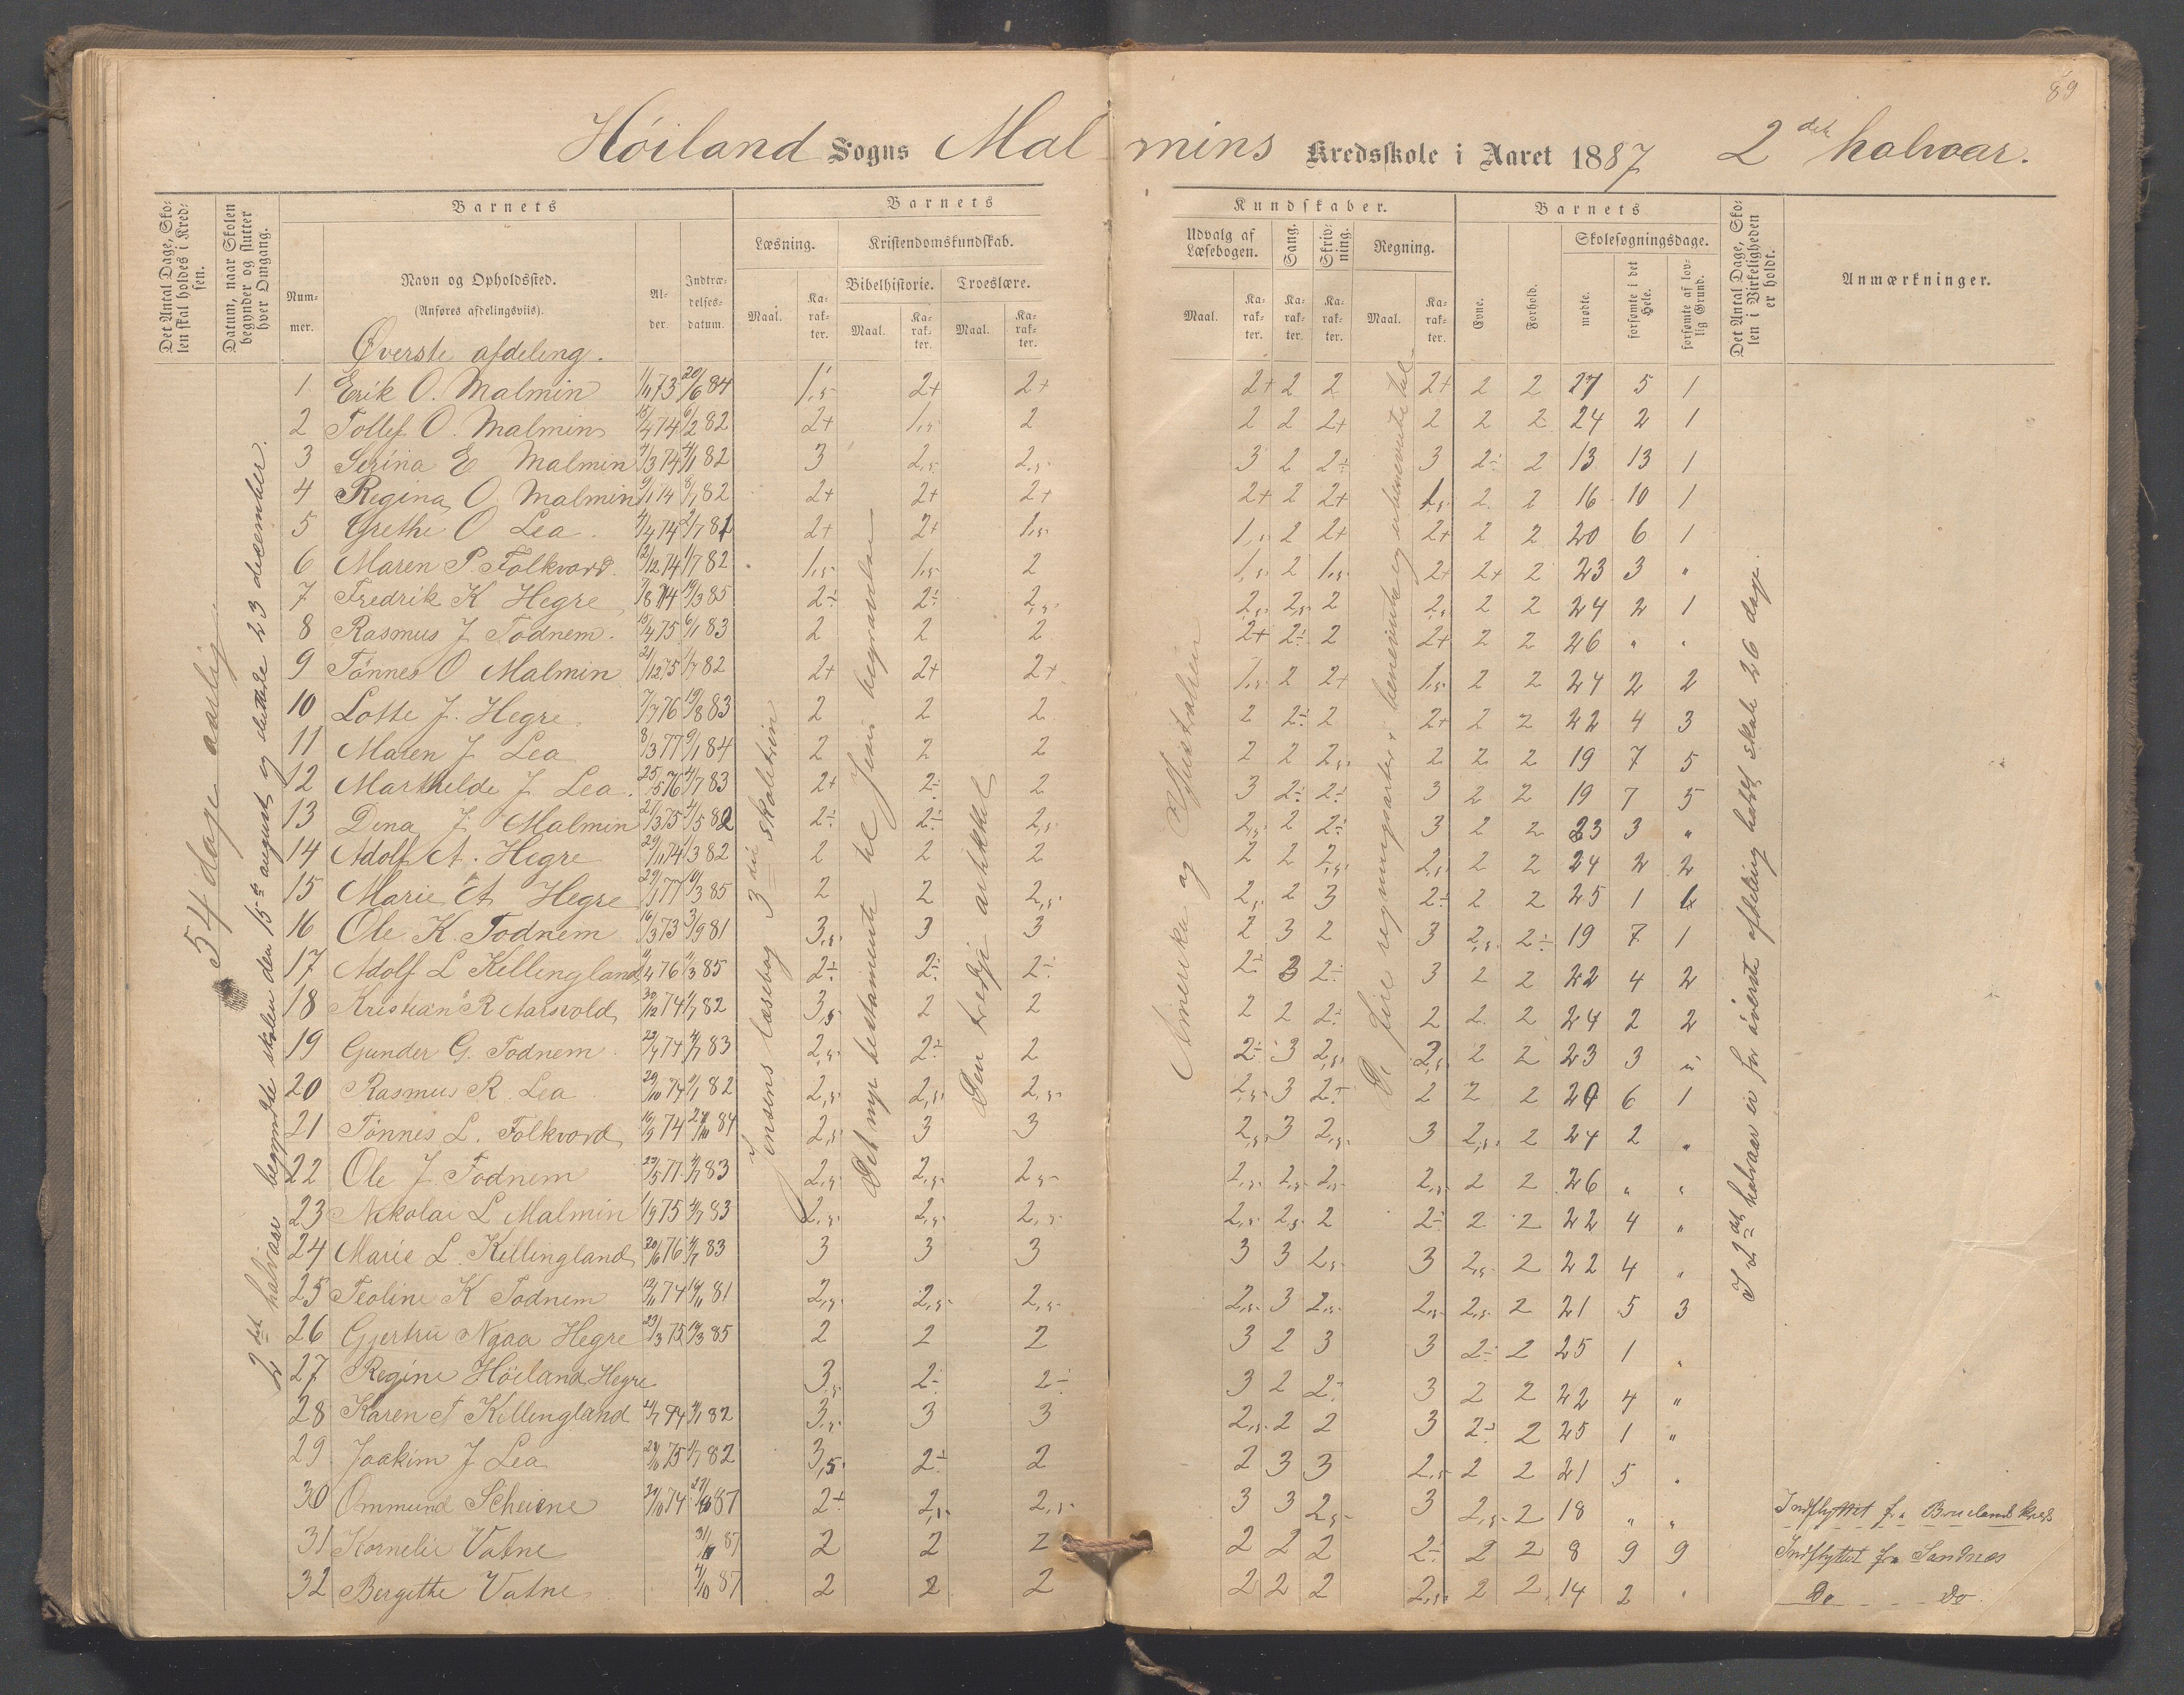 89
Høiland Sogns Malmins Kredsskole i Aaret 1887 2det halvaar.
Det Antal Dage, Skolen skal holdes i Kredsen.
Datum, naar Skolen begynder og slutter hver Omgang.
Barnets
Nummer.
Navn og Opholdssted.
(Anføres afdelingsviis).
Alder.
Indtrædelsesdatum.
Barnets Kundskaber.
Læsning.
Maal.
Karakter.
Kristendomskundskab.
Bibelhistorie.
Maal.
Karakter.
Troeslære.
Maal.
Karakter.
Udvalg af Læsebogen.
Maal.
Karakter.
Sang.
Karakter.
Skrivning.
Karakter.
Regning.
Maal.
Karakter.
Barnets
Evne.
Forhold.
Skolesøgningsdage.
mødte.
forsømte i det Hele.
forsømte af lovlig Grund.
Det Antal Dage, Skolen i Virkeligheden er holdt.
Anmærkninger.
54 dage aarlig
2det halvaar begyndte skolen den 15de august og sluttede 23 december.
Jensens læsebog 3die skoletrin
Det nye testamente til Jesu begravelse
Den tredje artikkel
Amerika og Australien
De fire regningsarter i benævnte og ubenævnte tal
I 2det halvaar er for øverste afdeling holdt skole 26 dage.
Øverste afdeling.
1 Erik O. Malmin 1/11 73 20/6 84 1,5 2+ 2+ 2+ 2 2 2+ 2 2 27 5 1
2 Tollef O. Malmin 15/4 74 6/2 82 2+ 1,5 2 2 2 2+ 2 2 2 24 2 1
3 Serina E Malmin 4/3 74 4/1 82 3 2,5 2,5 3 2 2÷ 3 2÷ 2 13 13 1
4 Regina O Malmin 9/1 74 8/1 82 2+ 2+ 2+ 2+ 2 2+ 1,5 2 2 16 10 1
5 Grethe O Lea 4/4 74 2/7 81 2+ 2+ 1,5 1,5 2 2+ 2+ 2 2 20 6 1
6 Maren P. Folkvord 2/12 74 1/7 82 1,5 1,5 2 1,5 2 1,5 2+ 2+ 2 23 3 "
7 Fredrik K Hegre 7/8 74 19/3 85 2÷ 2÷ 2,5 2,5 2,5 2 2,5 2 2 24 2 1
8 Rasmus J. Todnem 15/4 75 6/1 83 2 2 2 2+ 2÷ 2 2+ 2 2 26 " "
9 Tønnes O Malmin 21/12 75 1/7 82 2+ 2+ 2+ 1,5 2 2+ 1,5 2 2 24 2 2
10 Lotte J. Hegre 7/7 76 19/8 83 2 2 2 2 2÷ 2 2+ 2 2 22 4 3
11 Maren J Lea 8/3 77 9/1 84 2 2 2 2 2 2,5 2 2 2 19 7 5
12 Marthilde J Lea 25/5 76 4/7 83 2+ 2÷ 2 3 2÷ 2÷ 3 2 2 19 7 5
13 Dina J Malmin 21/3 75 4/5 82 2÷ 2÷ 2,5 2,5 2 2÷ 3 2 2 23 3 "
14 Adolf A. Hegre 29/11 74 1/3 82 2 2 2 2 2 2,5 2,5 2 2 24 2 2
15 Marie A Hegre 29/1 77 19/3 85 2 2 2,5 2,5 2 3 2÷ 2 2 25 1 1
16 Ole K. Todnem 16/3 73 3/9 81 3,5 3 3 2 3 2 3 2,5 2÷ 19 7 1
17 Adolf L Killingland 9/4 76 9/3 85 2÷ 2÷ 2÷ 2÷ 3 2÷ 3 2 2 22 4 2
18 Kristian R Aarsvold 30/12 74 1/7 82 3,5 2 2 2 2 2÷ 2 2 2 24 2 2
19 Gunder G. Todnem 22/4 74 4/7 83 2,5 2÷ 2 2÷ 3 2,5 2,5 2 2 23 3 "
20 Rasmus R. Lea 20/10 74 9/1 82 2,5 2,5 2,5 2,5 3 2÷ 2 2 2 20 6 1
21 Tønnes L. Folkvord 16/9 74 21/10 84 2,5 3 3 2,5 3 2,5 3 2,5 2 24 2 "
22 Ole J. Todnem 23/5 77 4/7 83 2,5 2,5 2,5 2,5 2,5 2,5 2,5 2 2 26 " "
23 Nikolai L Malmin 1/9 75 4/7 83 2,5 2,5 2,5 2,5 2,5 2 2÷ 2 2 22 4 "
24 Marie L. Killingland 20/6 76 4/7 83 3 3 3 3 3 2,5 3 2,5 2 22 4 "
25 Teoline K Todnem 12/11 74 14/11 81 2,5 2,5 2,5 2,5 3 2,5 2,5 2,5 2 21 5 3
26 Gjertru Ngaa Hegre 29/3 75 19/3 85 2 2 2 3 2 3 3 2÷ 2 25 1 "
27 Regine Høiland Hegre 3,5 2÷ 2÷ 3 2 2÷ 3 2 2 22 4 "
28 Karen T Killingland 21/7 74 4/1 82 3,5 3 3 2,5 2 2 3 2÷ 2 25 1 "
29 Joakim J Lea 24/6 75 1/7 82 3,5 2÷ 2 2 3 3 2,5 2 2 21 5 "
30 Ommund Scheiene 24/10 74 27/10 87 2+ 2,5 2,5 3 3 2,5 3 2,5 2 18 " " Indflyttet fra Bruelands kreds
31 Kornelie Vatne 31/10 87 2 2 2 2 2 2 2÷ 2 2 8 9 9 Indflyttet fra Sandnes
32 Bergithe Vatne 4/10 87 2 2 2 2 2 2 2,5 2 2 14 2 " Do Do